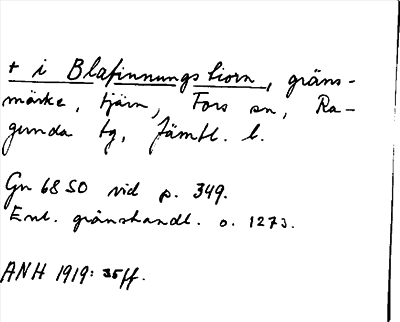 + i Blafinnungstiorn, gräns-
märke, tjärn, Fors sn, Ra-
gunda tg, Jämtl. l.
Gn 68 SO vid p. 349.
Enl. gränshandl. o. 1273.
ANH 1919: 35 ff.